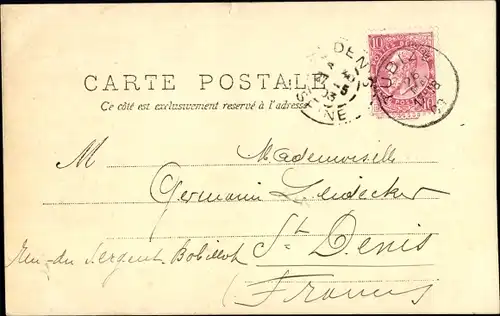 CARTE POSTALE
Ce côté est exclusivement reservé à l'adresse
M Mademoiselle
Germaine Leidecker
St Denis
Rue du Sergent Bobillot
(France)
10
10
ST DENIS
SEINE